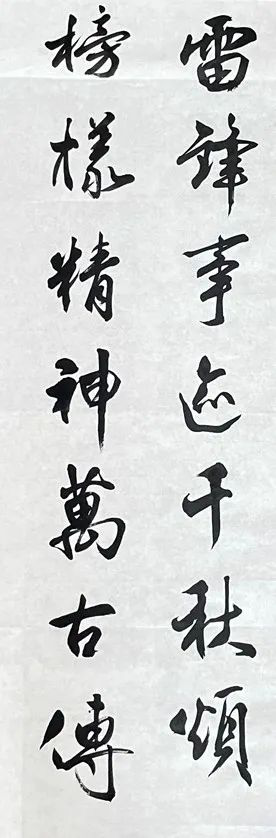 雷鋒事迹千秋頌
榜樣精神萬古傳